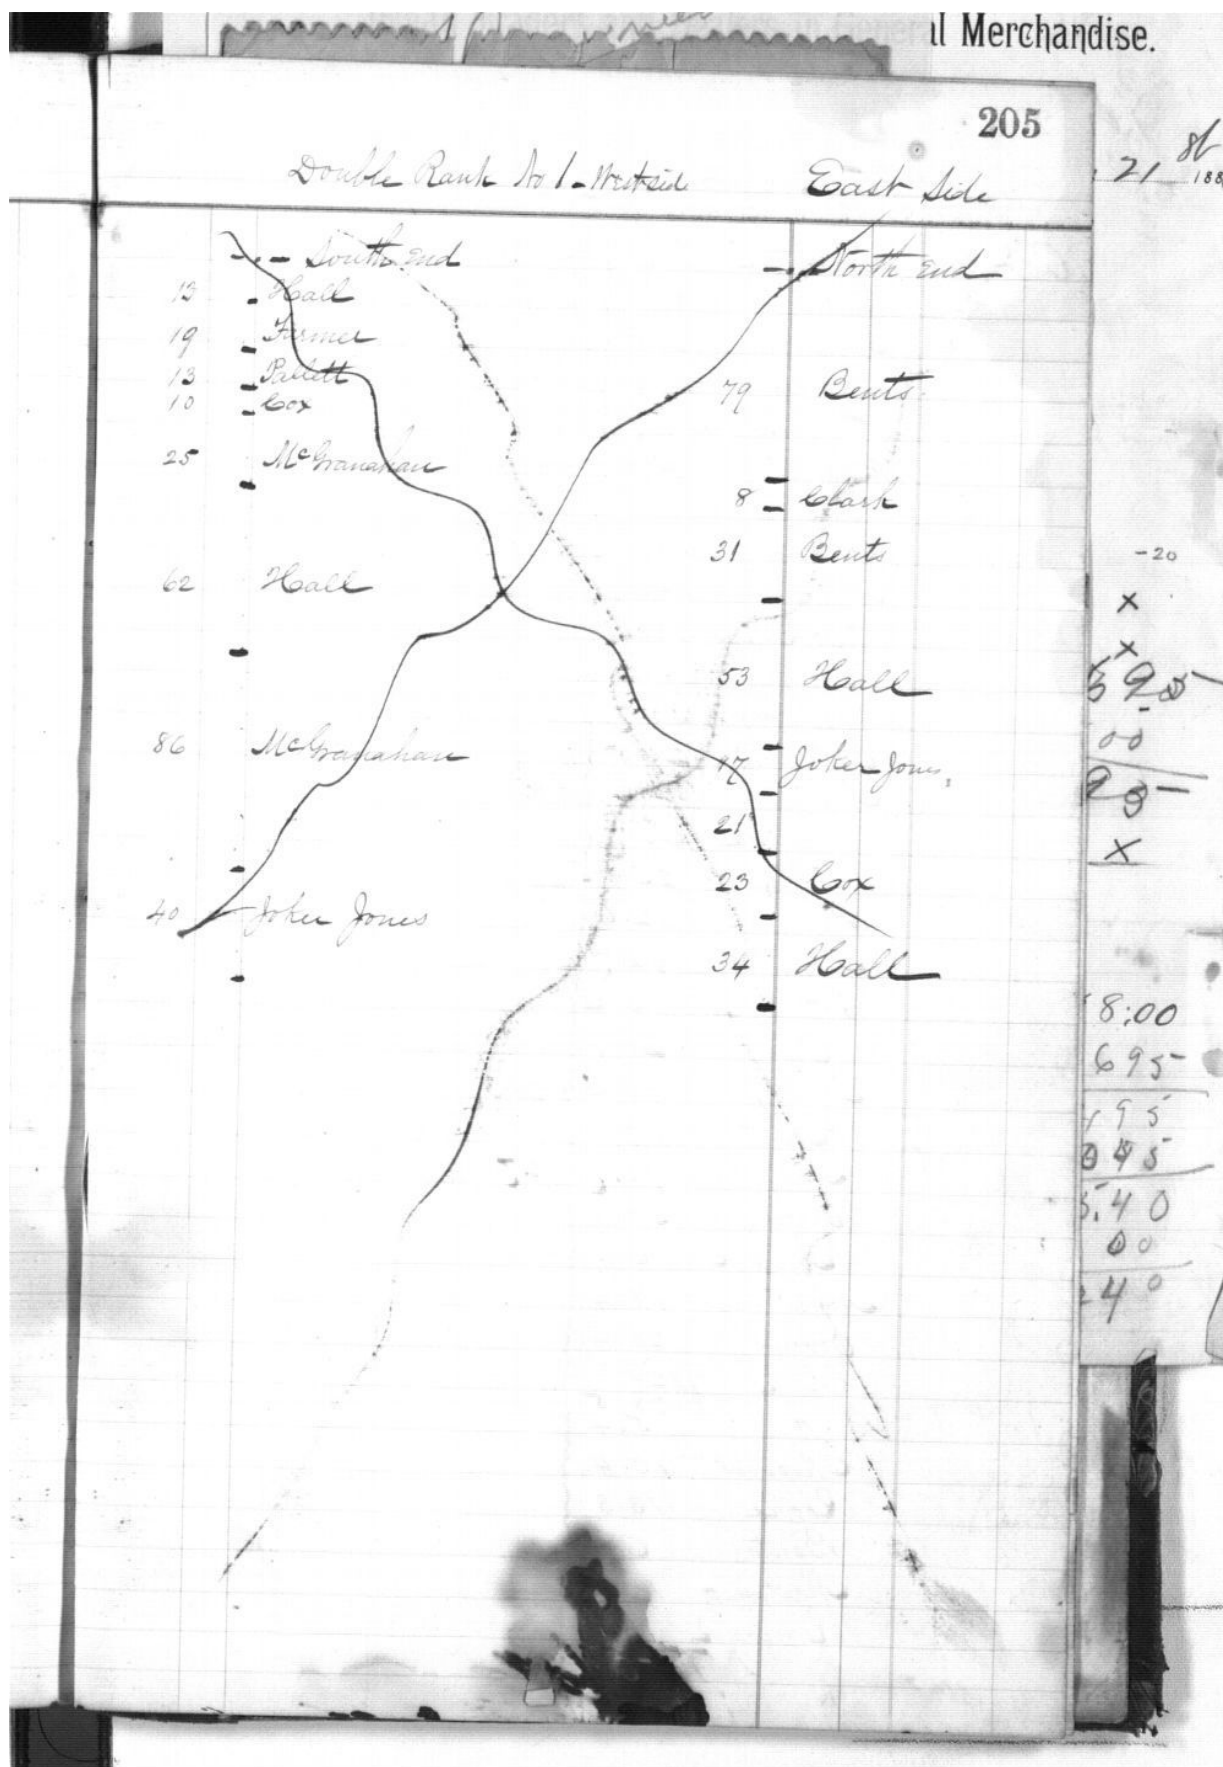 ll Merchandise.
205
21 188
Double Rank No 1 - West side East Side
South End
13 Hall
19 Farmer
13 Pallett
10 Cox
25 McGranahan
62 Hall
86 McGranahan
40 Joker Jones
North End
79 Bents
8 Clark
31 Bents
53 Hall
17 Joker Jones,
21
23 Cox
34 Hall
-20
x
x
x
8:00
695
195
5.40
00
240